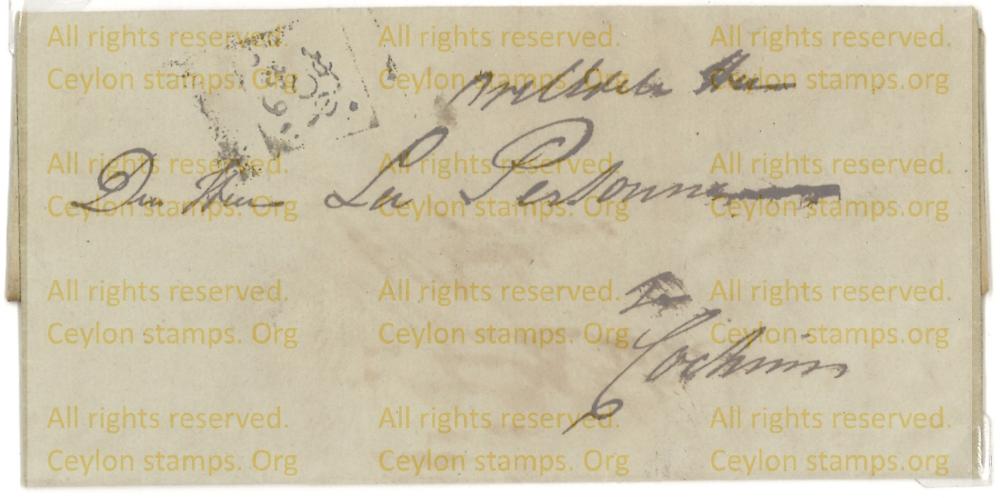 All rights reserved. All rights reserved. All rights reserved.
Ceylon stamps. Org Ceylon stamps. Org Ceylon stamps.org
Heer
All rights reserved. All rights reserved. All rights reserved.
Den Heer La Personne
Ceylon stamps. Org Ceylon stamps. Org Ceylon stamps.org
All rights reserved. All rights reserved. All rights reserved.
Ceylon stamps. Org Ceylon stamps. Org Ceylon stamps.org
Cochim
All rights reserved. All rights reserved. All rights reserved.
Ceylon stamps. Org Ceylon stamps. Org Ceylon stamps.org